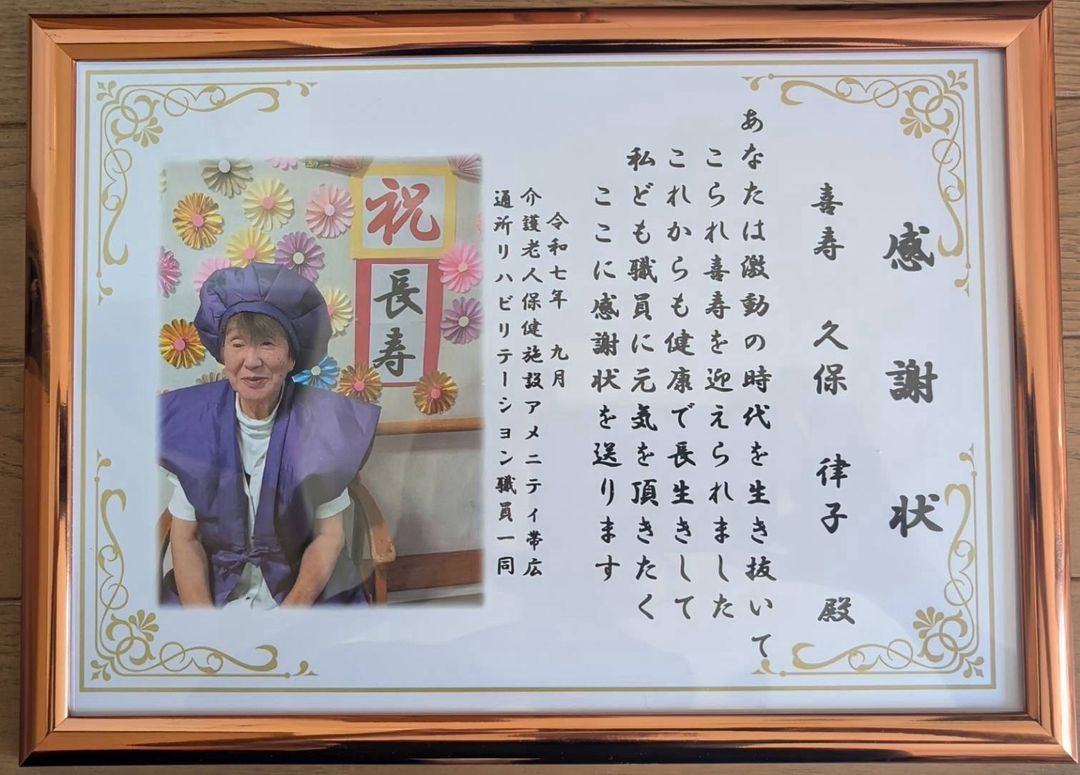 感謝状
喜寿 久保 律子 殿
あなたは激動の時代を生き抜いて
こられ喜寿を迎えられました
これからも健康で長生きして
私ども職員に元気を頂きたく
ここに感謝状を送ります
令和七年 九月
介護老人保健施設アメニティ帯広
通所リハビリテーション職員一同
祝
長寿